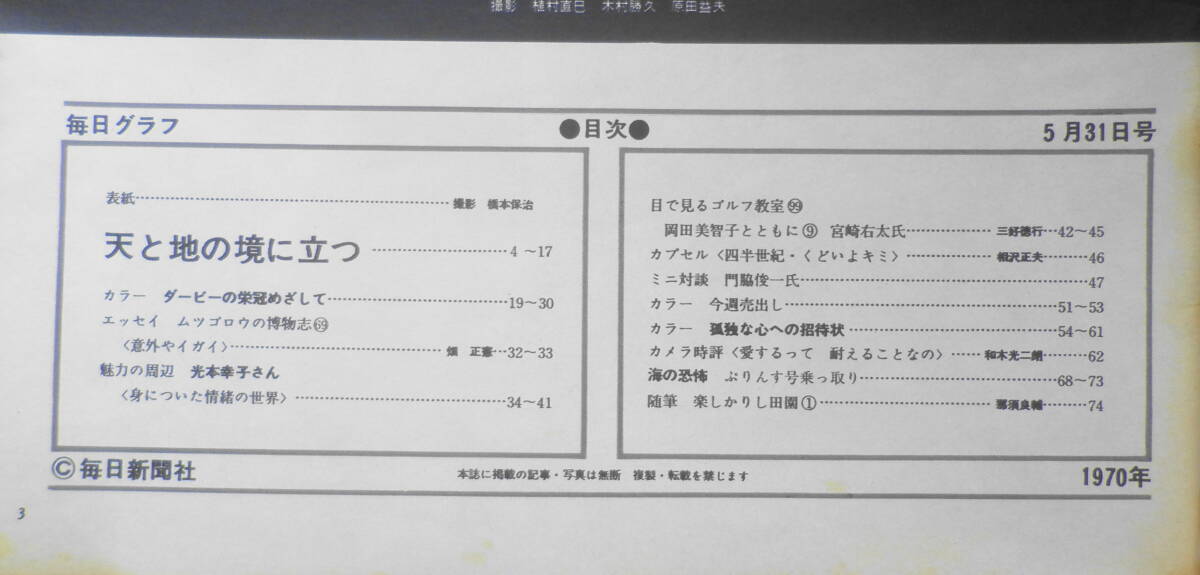 撮影 植村直己 木村勝久 原田益夫
毎日グラフ
●目次●
5月31日号
表紙……撮影 橋本保治
天と地の境に立つ……4～17
カラー ダービーの栄冠めざして……19～30
エッセイ ムツゴロウの博物志69
〈意外やイガイ〉……畑 正憲…32～33
魅力の周辺 光本幸子さん
〈身についた情緒の世界〉……34～41
目で見るゴルフ教室99
岡田美智子とともに⑨ 宮崎右太氏……三好徳行…42～45
カプセル〈四半世紀・くどいよキミ〉……相沢正夫……46
ミニ対談 門脇俊一氏……47
カラー 今週売出し……51～53
カラー 孤独な心への招待状……54～61
カメラ時評〈愛するって 耐えることなの〉……和木光二朗……62
海の恐怖 ぷりんす号乗っ取り……68～73
随筆 楽しかりし田園①……那須良輔……74
©毎日新聞社
本誌に掲載の記事・写真は無断 複製・転載を禁じます
1970年
3